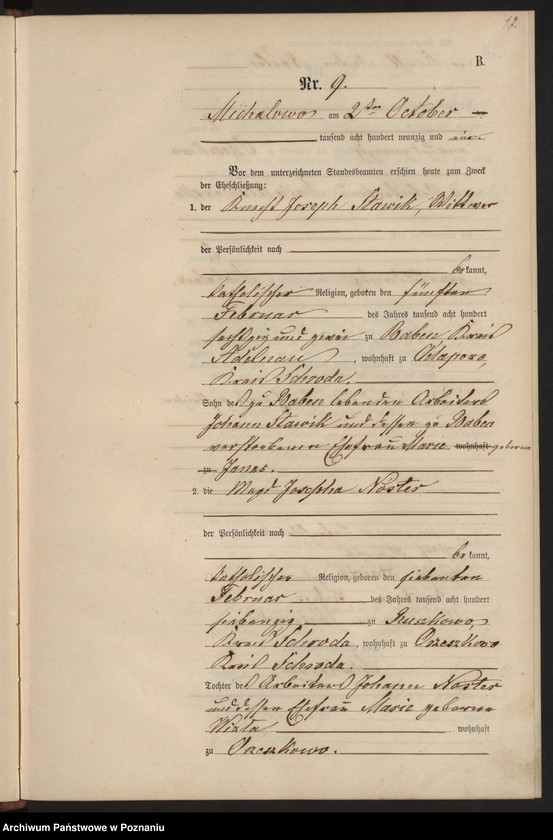 12
B.
Nr. 9.
Michalowo am 2ten October
tausend acht hundert neunzig und ein
Vor dem unterzeichneten Standesbeamten erschien heute zum Zweck
der Eheschließung:
1. der Knecht Joseph Stawik, Wittwer
der Persönlichkeit nach
be kannt,
katholischer Religion, geboren den fünften
Februar des Jahres tausend acht hundert
sechzig und zwei zu Baben Kreis
Adelnau, wohnhaft zu
Kreis Schroda.
Sohn des zu Baben lebenden Arbeiters
Johann Stawik und dessen zu Baben
verstorbenen Ehefrau Marie wohnhaft geborene
zu Janas.
2. die Magd Josepha Noster
der Persönlichkeit nach
be kannt,
katholischer Religion, geboren den siebenten
Februar des Jahres tausend acht hundert
siebenzig zu Ruszkowo,
Kreis Schroda, wohnhaft zu
Kreis Schroda.
Tochter des Arbeiters Johann Noster
und dessen Ehefrau Marie geborene
wohnhaft
zu
Archiwum Państwowe w Poznaniu